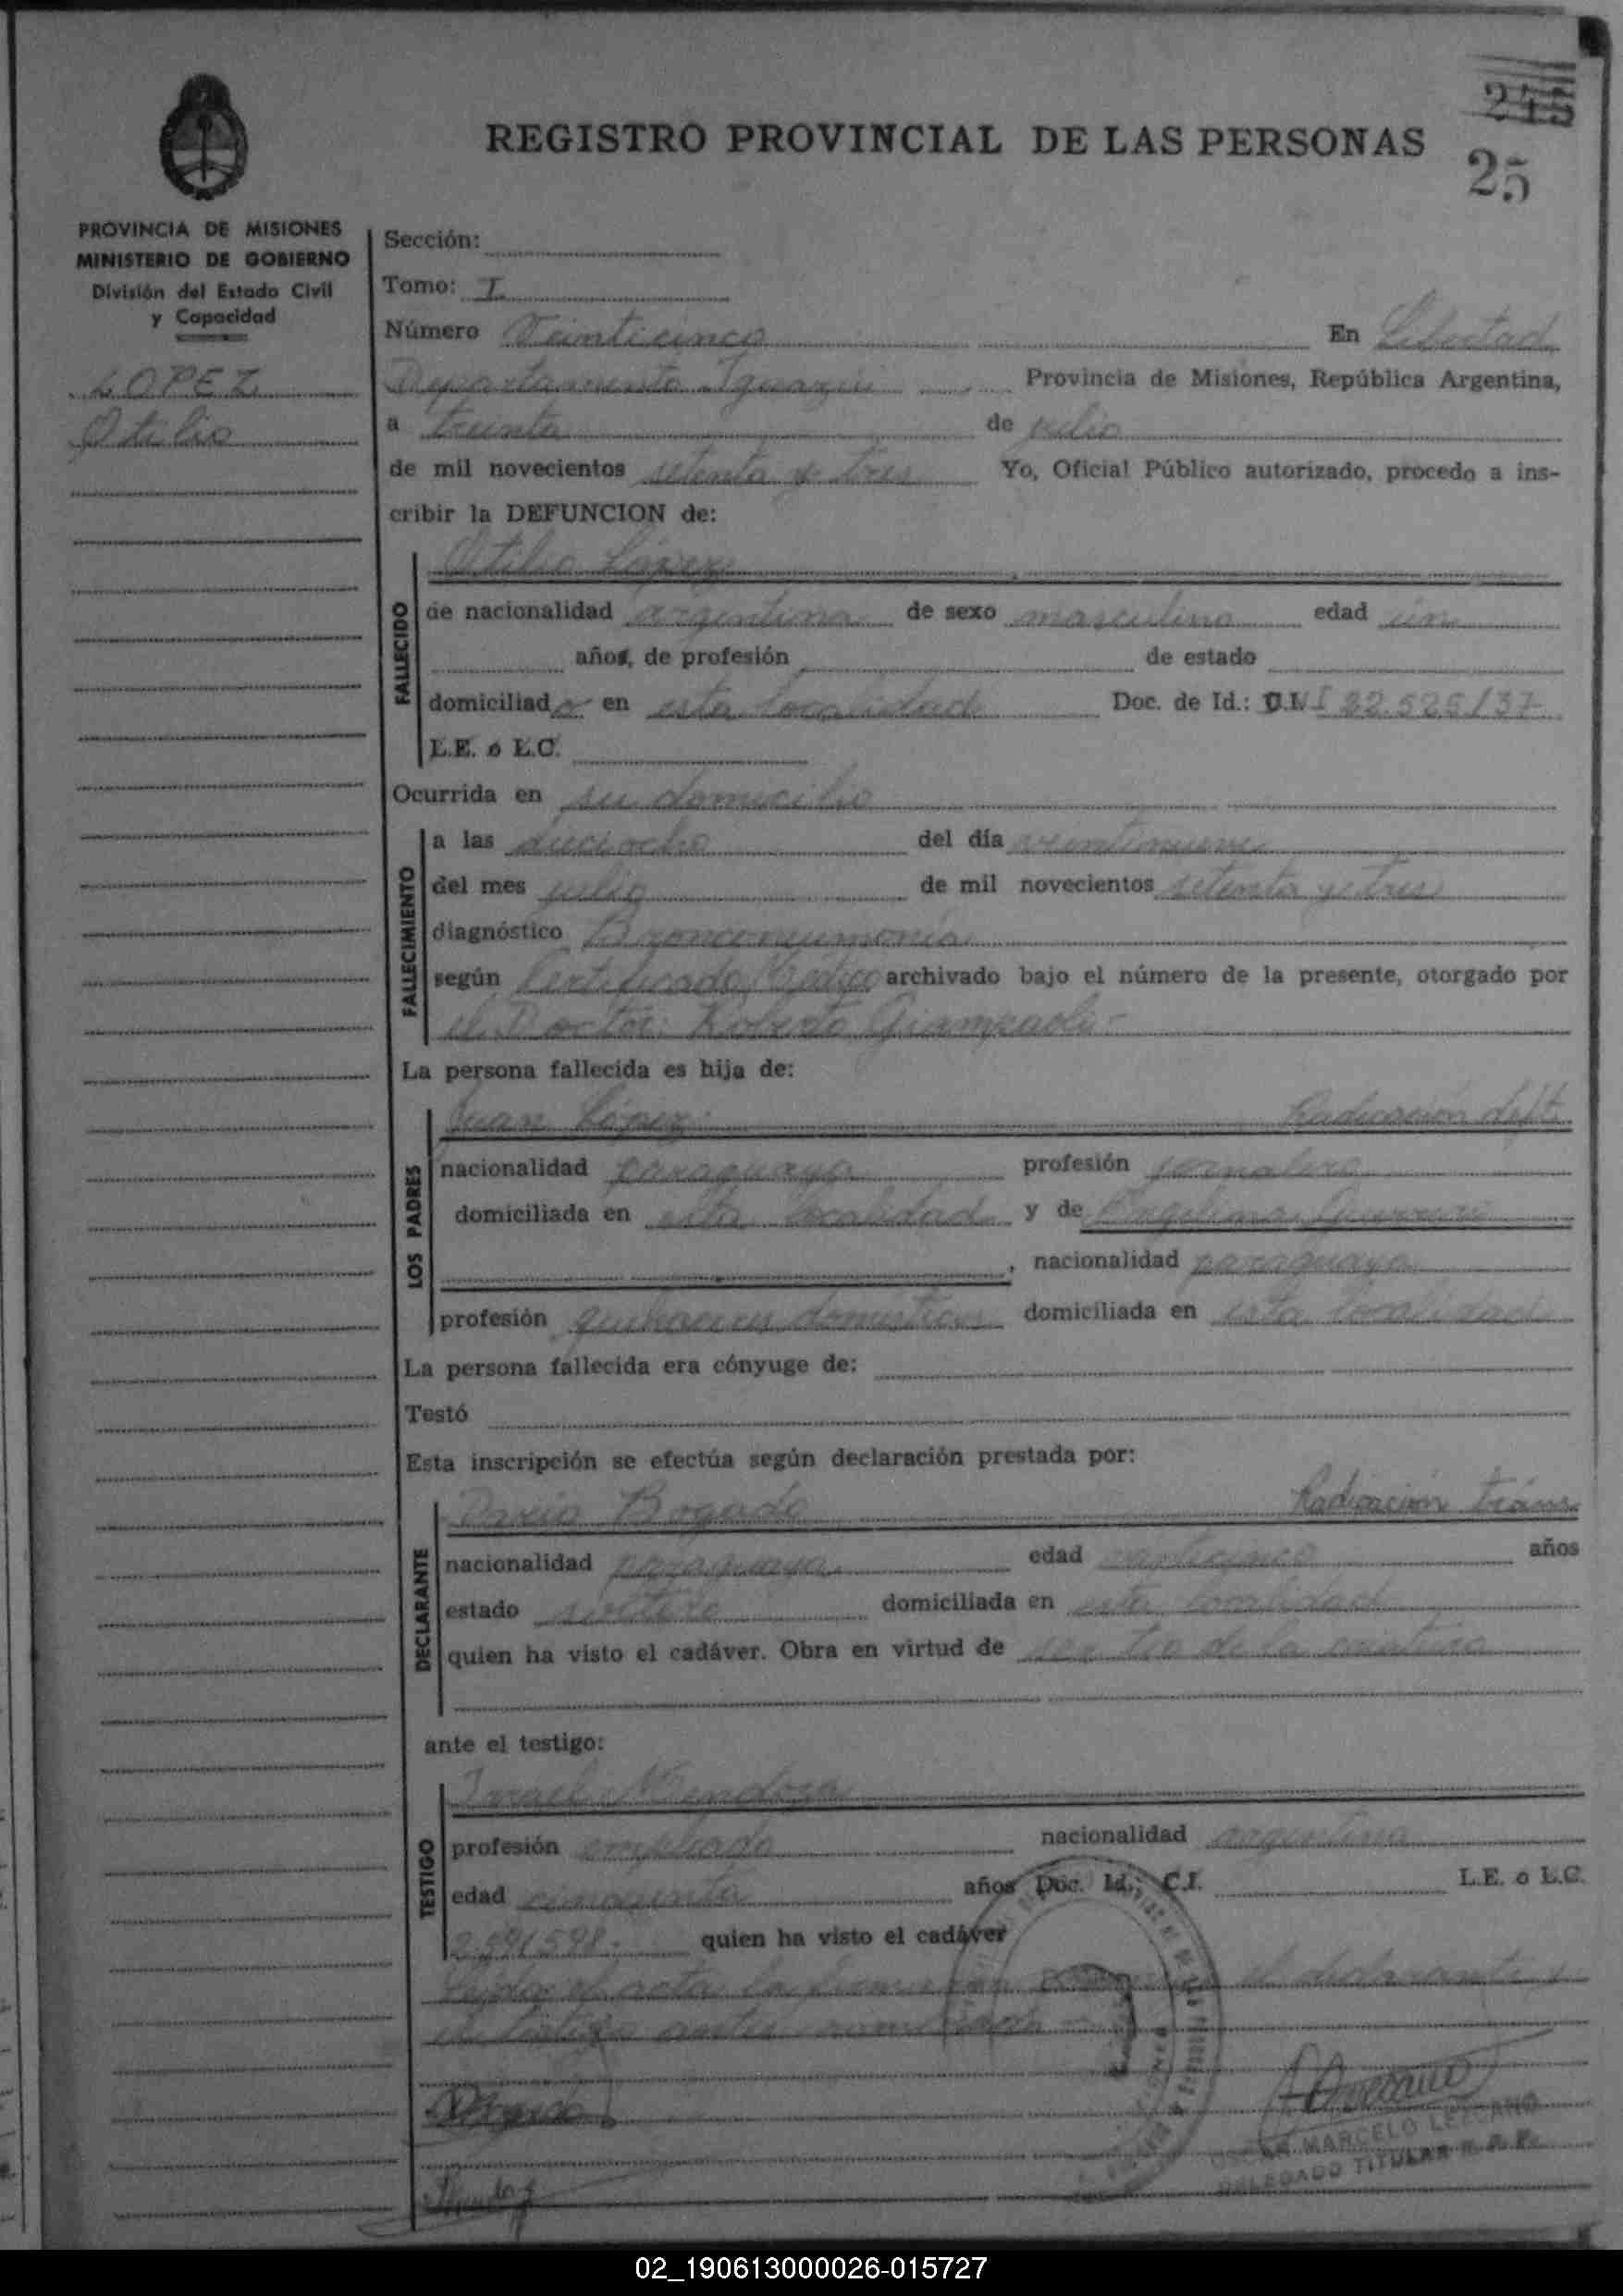 245
REGISTRO PROVINCIAL DE LAS PERSONAS
25
PROVINCIA DE MISIONES
MINISTERIO DE GOBIERNO
División del Estado Civil
y Capacidad
LOPEZ
Otilio
Sección:
Tomo: I
Número Veinticinco En Libertad
Departamento Iguazú Provincia de Misiones, República Argentina,
a treinta de julio
de mil novecientos setenta y tres Yo, Oficial Público autorizado, procedo a ins-
cribir la DEFUNCION de:
Otilio López
FALLECIDO
de nacionalidad argentina de sexo masculino edad un
años, de profesión de estado
domiciliado en esta localidad Doc. de Id.: D.N.I 22.525/37
L.E. o L.C.
Ocurrida en su domicilio
FALLECIMIENTO
a las dieciocho del día veintinueve
del mes julio de mil novecientos setenta y tres
diagnóstico Bronconeumonia
según Certificado Médico archivado bajo el número de la presente, otorgado por
el Doctor: Roberto Giampaoli-
La persona fallecida es hija de:
LOS PADRES
Juan López Radicación
nacionalidad paraguaya profesión jornalero
domiciliada en esta localidad y de Angelina
, nacionalidad paraguaya
profesión quehaceres domesticos domiciliada en esta localidad
La persona fallecida era cónyuge de:
Testó
Esta inscripción se efectúa según declaración prestada por:
DECLARANTE
Dario Bogado Radicación
nacionalidad paraguaya edad veinticinco años
estado soltero domiciliada en esta localidad
quien ha visto el cadáver. Obra en virtud de ser tio de la criatura
ante el testigo:
TESTIGO
Israel Mendoza
profesión empleado nacionalidad argentina
edad cincuenta años Doc. Id.: C.I. L.E. o L.C.
2.591.598.- quien ha visto el cadáver
Leida el acta la firman el declarante y
el testigo antes nombrado -
OSCAR MARCELO LEZCANO
DELEGADO TITULAR R. P.
02_190613000026-015727